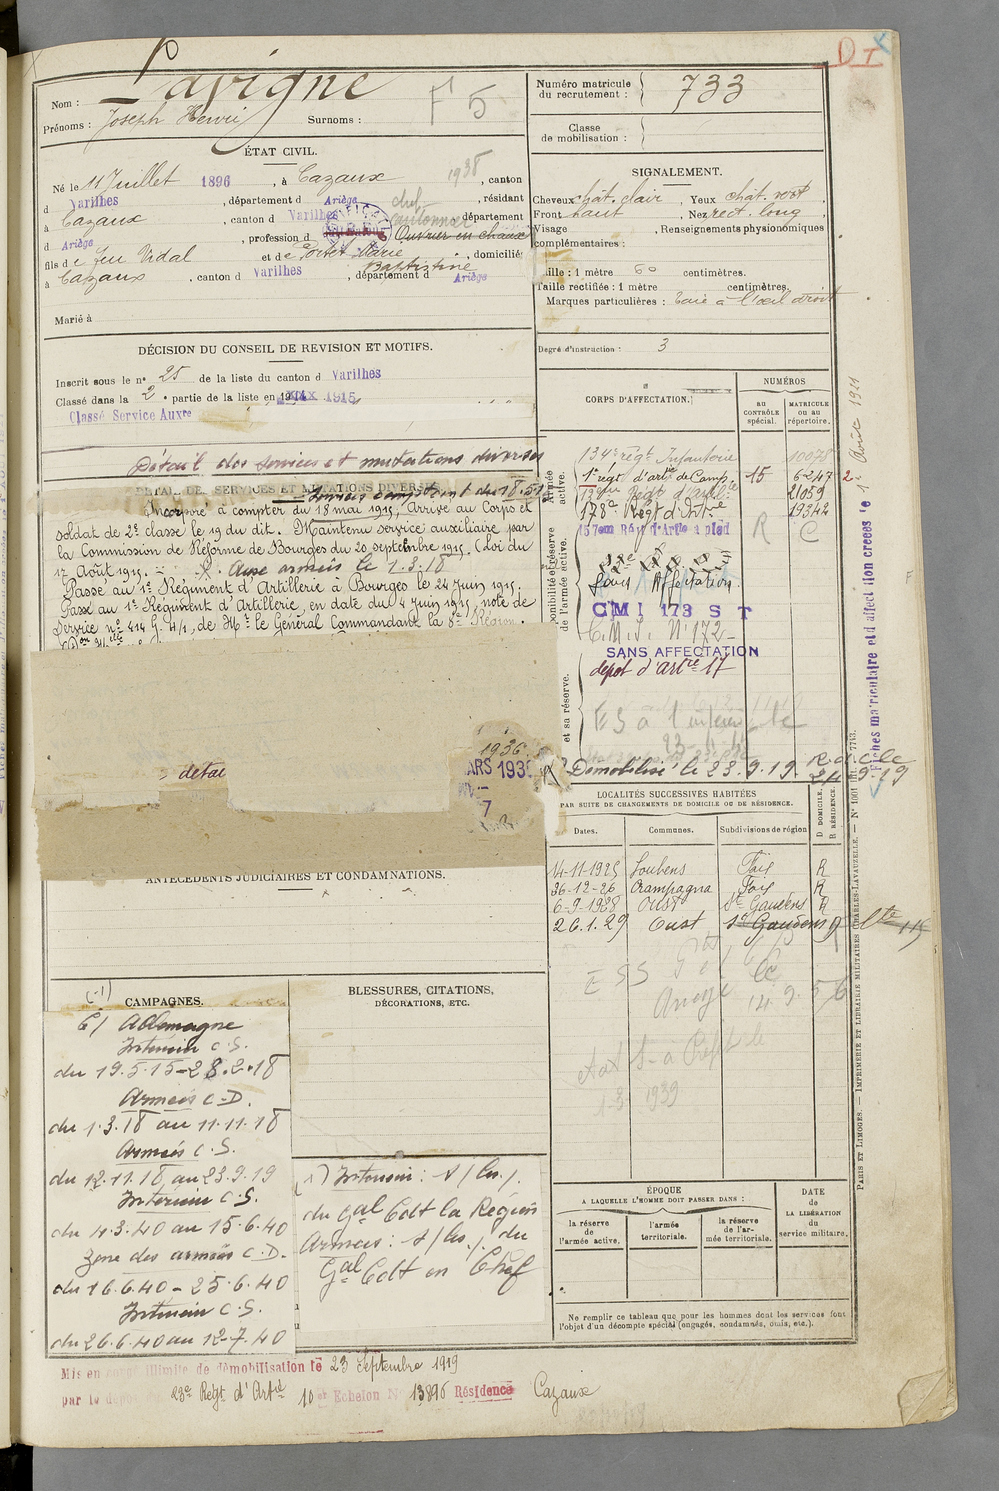 D T
Nom : Lavigne
Prénoms : Joseph Henri Surnoms :
F 5
Numéro matricule du recrutement : 733
Classe de mobilisation :
ÉTAT CIVIL.
Né le 11 Juillet 1896, à Cazaux, canton
1938
d Varilhes, département d Ariège, résidant
chef cantonnier
à Cazaux, canton d Varilhes, département
d Ariège, profession d Ouvrier en chaux
fils de feu Vidal et de Portet Marie Baptistine, domiciliés
à Cazaux, canton d Varilhes, département d Ariège
Marié à
SIGNALEMENT.
Cheveux chât. clair, Yeux chât. vert
Front haut, Nez rect. long,
Visage, Renseignements physionomiques
complémentaires :
Taille : 1 mètre 60 centimètres.
Taille rectifiée : 1 mètre centimètres.
Marques particulières : taie à l'œil droit
Degré d'instruction : 3
DÉCISION DU CONSEIL DE REVISION ET MOTIFS.
Inscrit sous le n° 25 de la liste du canton d Varilhes
Classé dans la 2e partie de la liste en 1915
Classé Service Auxre
Détail des services et mutations diverses
DÉTAIL DES SERVICES ET MUTATIONS DIVERSES
Incorporé à compter du 18 mai 1915, Arrivé au Corps et
soldat de 2e classe le 19 du dit. Maintenu service auxiliaire par
la Commission de Réforme de Bourges du 20 septembre 1915. (Loi du
17 Août 1915. Aux armées le 1.3.18
Passé au 1er Régiment d'Artillerie à Bourges le 24 Juin 1915.
Passé au 1er Régiment d'Artillerie, en date du 4 Juin 1915, note de
Service n° 414 G. 4/1, de Mr le Général Commandant la 8e Région.
détac
1936
MARS 193
7
CORPS D'AFFECTATION.
NUMÉROS
au CONTRÔLE spécial.
MATRICULE ou au répertoire.
Armée active.
Disponibilité et réserve de l'armée active.
et sa réserve.
134e régt Infanterie 10078
1er régt d'artie de Camp 15 6247
Régt d'artie 21059
173e Régt d'Infie 19342
157eme Régt d'Artie à pied
R C
Sans Affectation.
CMI 173 S T
C.M.I. N° 172
SANS AFFECTATION
dépôt d'artie 17
Démobilisé le 23.9.19.
2 1er Août 1921
Fiches matriculaire et d'affectation créées le
LOCALITÉS SUCCESSIVES HABITÉES
PAR SUITE DE CHANGEMENTS DE DOMICILE OU DE RÉSIDENCE.
Dates. Communes. Subdivisions de région D DOMICILE. R RÉSIDENCE.
14-11-1925 Loubens Foix R
26-12-26 Crampagna Foix R
6-9-1928 Oust St Gaudens R
26.1.29 Oust St Gaudens R
14.9.56
1-3 1939
ANTÉCÉDENTS JUDICIAIRES ET CONDAMNATIONS.
(-1)
CAMPAGNES.
C/ Allemagne
Intérieur C.S.
du 19.5.15-28.2.18
Armées C.D.
du 1.3.18 au 11.11.18
Armées C.S.
du 12.11.18 au 23.9.19
Intérieur C.S.
du 4.3.40 au 15.6.40
Zone des armées C.D.
du 16.6.40 - 25.6.40
Intérieur C.S.
du 26.6.40 au 12-7.40
BLESSURES, CITATIONS,
DÉCORATIONS, ETC.
(1) Intérieur :
du Gal Cdt la Région
Armées : du
Gal Cdt en Chef
ÉPOQUE
A LAQUELLE L'HOMME DOIT PASSER DANS :
la réserve de l'armée active.
l'armée territoriale.
la réserve de l'armée territoriale.
DATE de LA LIBÉRATION du service militaire.
Ne remplir ce tableau que pour les hommes dont les services font
l'objet d'un décompte spécial (engagés, condamnés, omis, etc.).
PARIS ET LIMOGES. — IMPRIMERIE ET LIBRAIRIE MILITAIRES CHARLES-LAVAUZELLE. — N° 1001 7763.
Mis en congé illimité de démobilisation le 23 Septembre 1919
par le dépôt 23e Régt d'Artie 10er Echelon N° 13896 Résidence Cazaux